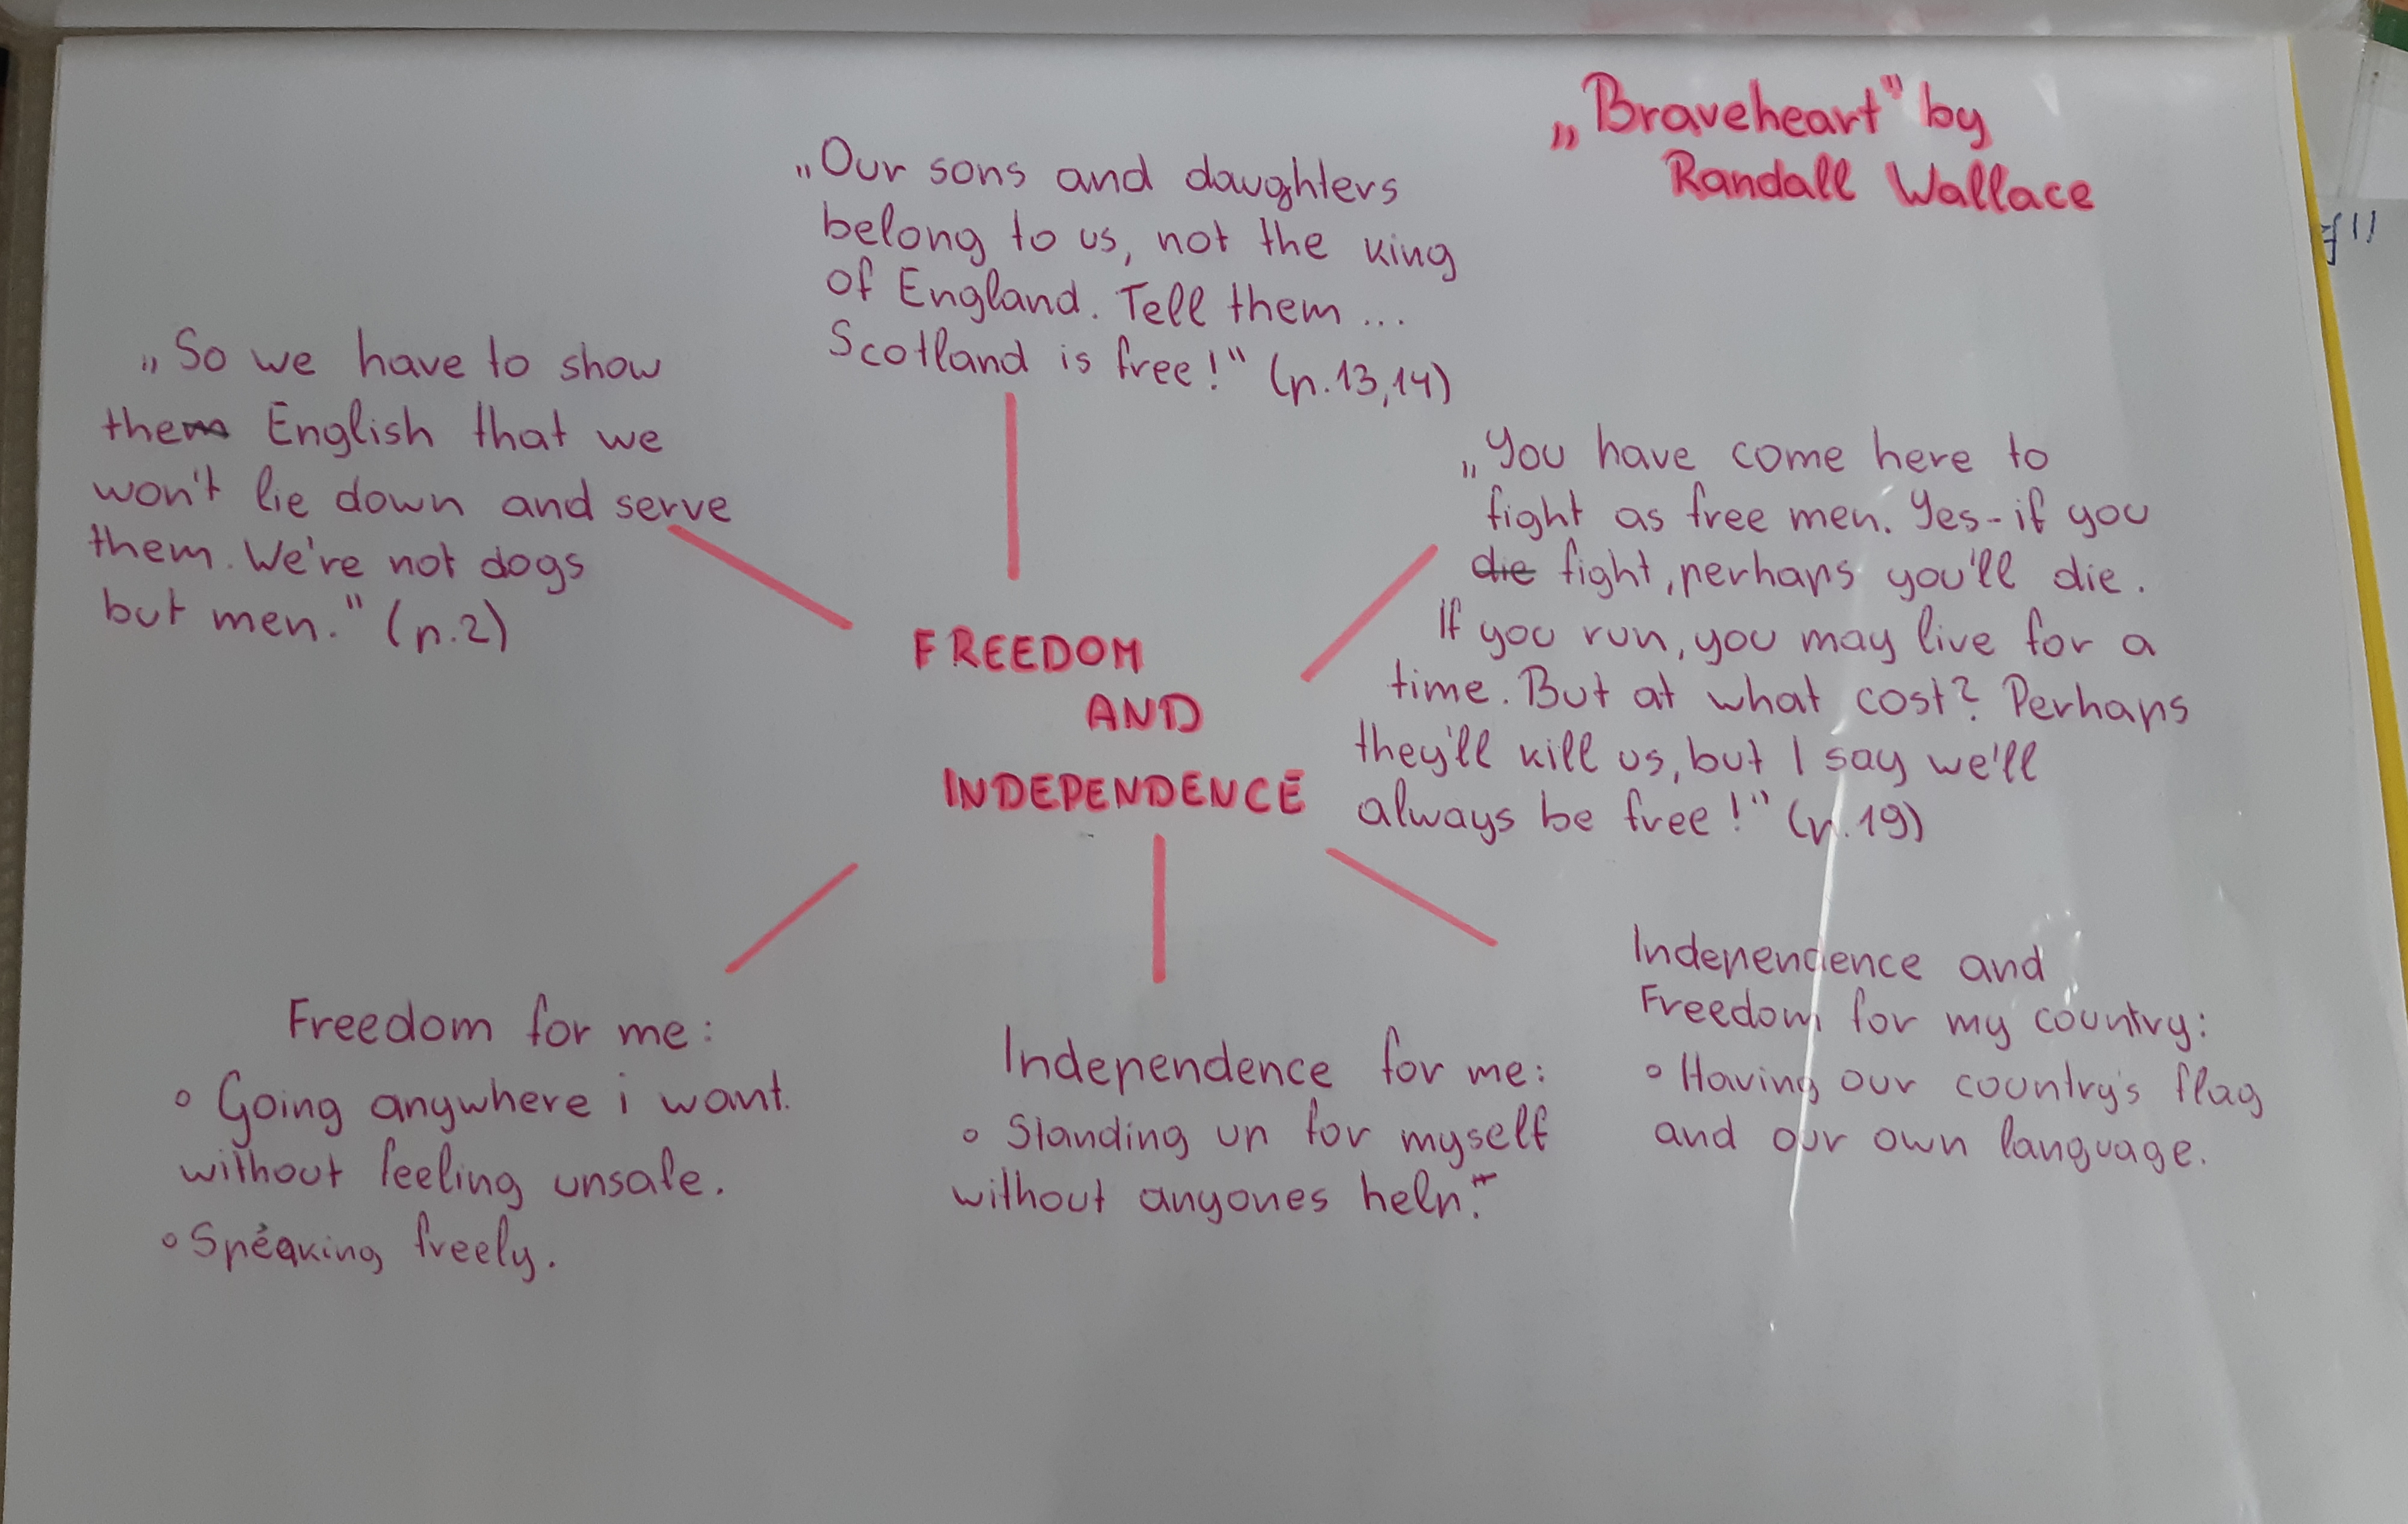 „Braveheart" by
Randall Wallace
„Our sons and daughters
belong to us, not the king
of England. Tell them ...
Scotland is free!" (p.13,14)
„So we have to show
the English that we
won't lie down and serve
them. We're not dogs
but men." (p.2)
„You have come here to
fight as free men. Yes - if you
die fight, perhaps you'll die.
If you run, you may live for a
time. But at what cost? Perhaps
they'll kill us, but I say we'll
always be free!" (p.19)
FREEDOM
AND
INDEPENDENCE
Freedom for me:
• Going anywhere i want.
without feeling unsafe.
• Speaking freely.
Independence for me:
• Standing up for myself
without anyones help.
Independence and
Freedom for my country:
• Having our country's flag
and our own language.